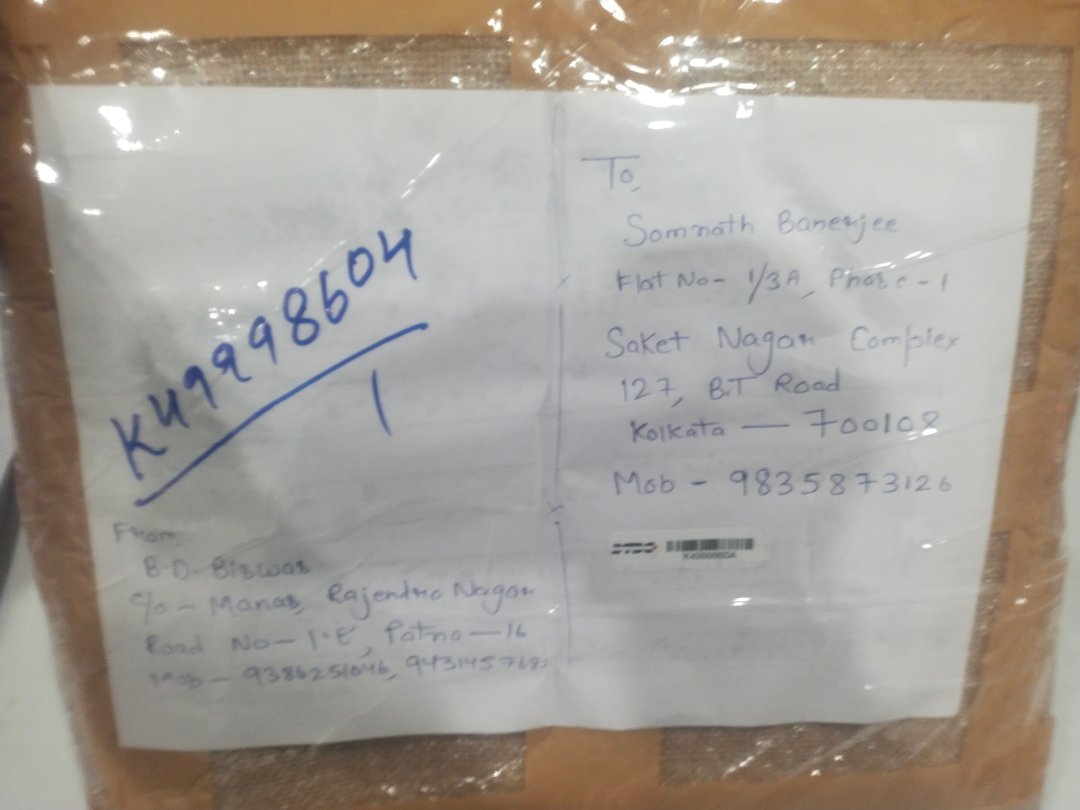 To,
Somnath Banerjee
Flat No- 1/3A, Phase-1
Saket Nagar Complex
127, B.T Road
Kolkata — 700108
Mob - 9835873126
DTDC
K49998604
K49998604
1
From,
B.D. Biswas
C/o - Manas, Rajendra Nagar
Road No - 1·E, Patna — 16
Mob - 9386251046,